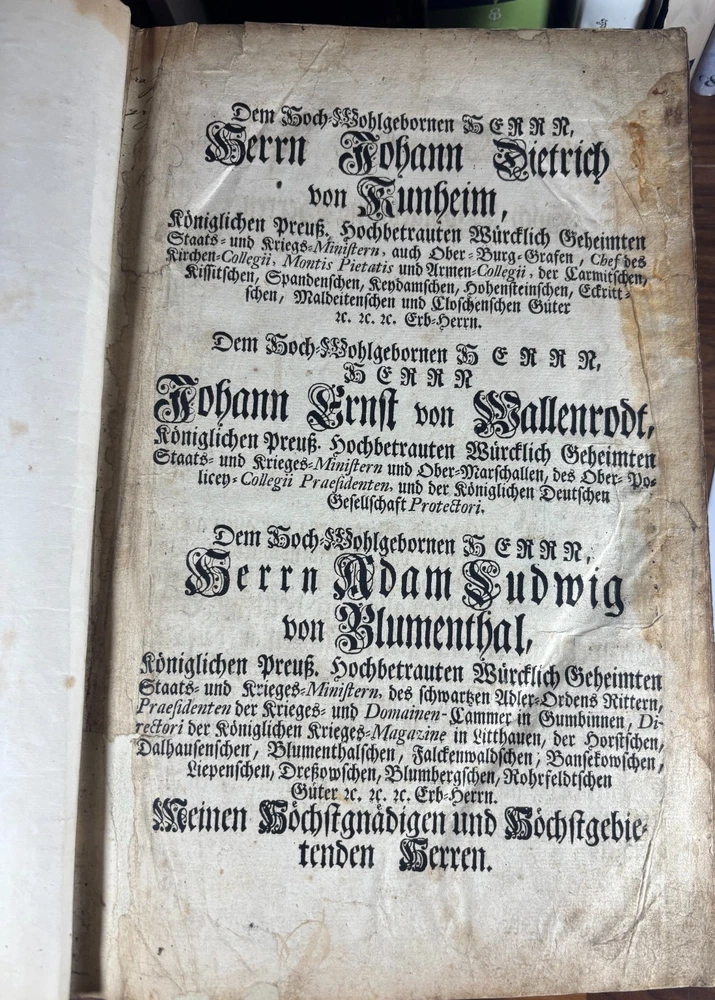 Dem Hoch-Wohlgebornen HERRN,
Herrn Johann Dietrich
von Kunheim,
Königlichen Preuß. Hochbetrauten Würcklich Geheimten
Staats- und Kriegs-Ministern, auch Ober-Burg-Grafen, Chef des
Kirchen-Collegii, Montis Pietatis und Armen-Collegii, der Carmitschen,
Kissitschen, Spandenschen, Keydamschen, Hohensteinschen, Eckritt-
schen, Maldeitenschen und Closchenschen Güter
ꝛc. ꝛc. ꝛc. Erb-Herrn.
Dem Hoch-Wohlgebornen HERRN,
HERRN
Johann Ernst von Wallenrodt,
Königlichen Preuß. Hochbetrauten Würcklich Geheimten
Staats- und Krieges-Ministern und Ober-Marschallen, des Ober-Po-
licey-Collegii Praesidenten, und der Königlichen Deutschen
Gesellschaft Protectori.
Dem Hoch-Wohlgebornen HERRN,
Herrn Adam Ludwig
von Blumenthal,
Königlichen Preuß. Hochbetrauten Würcklich Geheimten
Staats- und Krieges-Ministern, des schwartzen Adler-Ordens Rittern,
Praesidenten der Krieges- und Domainen-Cammer in Gumbinnen, Di-
rectori der Königlichen Krieges-Magazine in Litthauen, der Horstschen,
Dalhausenschen, Blumenthalschen, Falckenwaldschen, Bansekowschen,
Liepenschen, Dreßowschen, Blumbergschen, Rohrfeldtschen
Güter ꝛc. ꝛc. ꝛc. Erb-Herrn.
Meinen Höchstgnädigen und Höchstgebie-
tenden Herren.